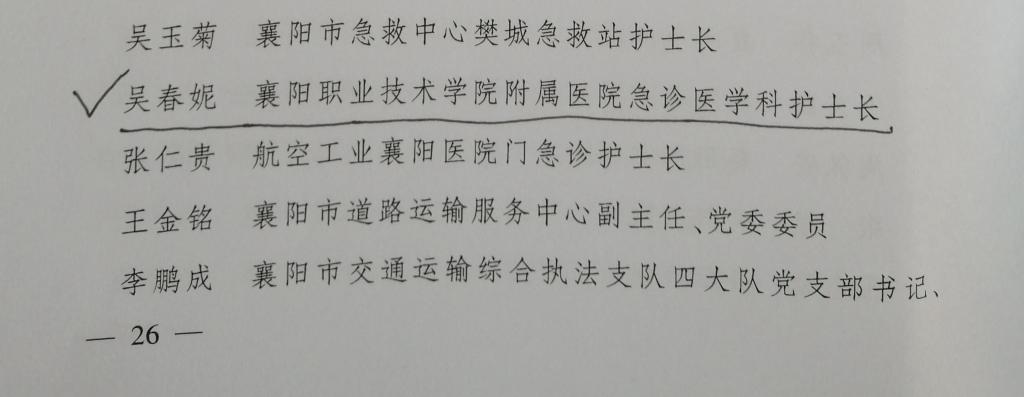 吴玉菊 襄阳市急救中心樊城急救站护士长
吴春妮 襄阳职业技术学院附属医院急诊医学科护士长
张仁贵 航空工业襄阳医院门急诊护士长
王金铭 襄阳市道路运输服务中心副主任、党委委员
李鹏成 襄阳市交通运输综合执法支队四大队党支部书记、
— 26 —